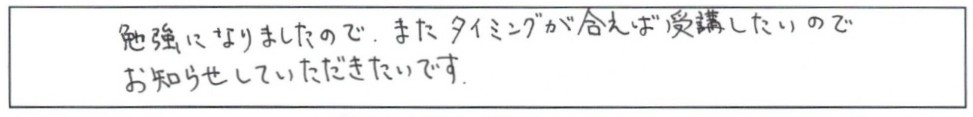 勉強になりましたので、またタイミングが合えば受講したいので
お知らせしていただきたいです。